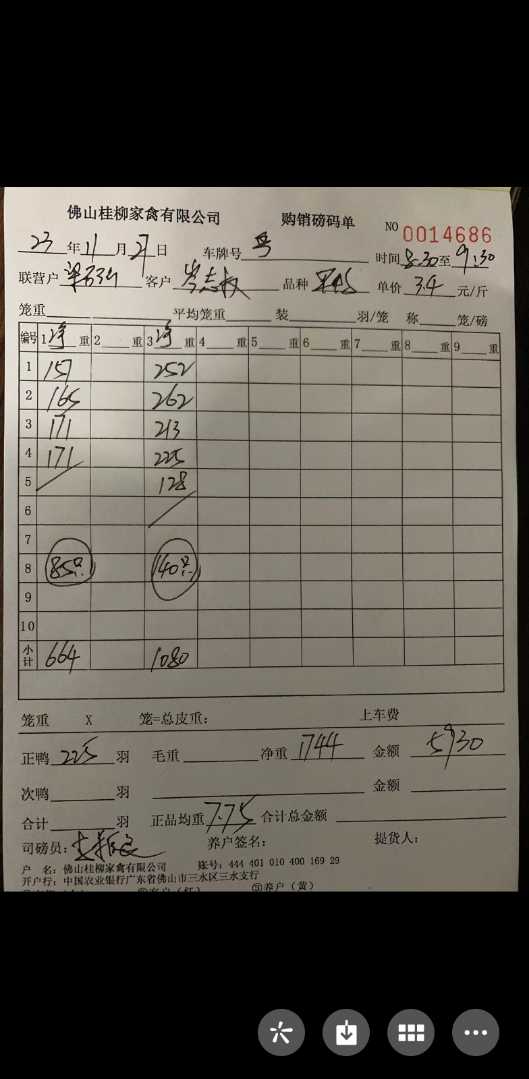 佛山桂柳家禽有限公司 购销磅码单 NO 0014686
23年11月27日 车牌号 时间8:30至9:30
联营户 客户 岑志权 品种 单价3.4元/斤
笼重 平均笼重 装 羽/笼 称 笼/磅
编号 1 净 重 2 重 3 净 重 4 重 5 重 6 重 7 重 8 重 9 重
1 157 252
2 165 262
3 171 213
4 171 225
5 128
6
7
8 85只 140只
9
10
小计 664 1080
笼重 X 笼=总皮重: 上车费
正鸭 225 羽 毛重 净重 1744 金额 5930
次鸭 羽 金额
合计 羽 正品均重 7.75 合计总金额
司磅员: 养户签名: 提货人:
户 名: 佛山桂柳家禽有限公司 账号: 444 401 010 400 169 29
开户行: 中国农业银行广东省佛山市三水区三水支行
⑤养户(黄)